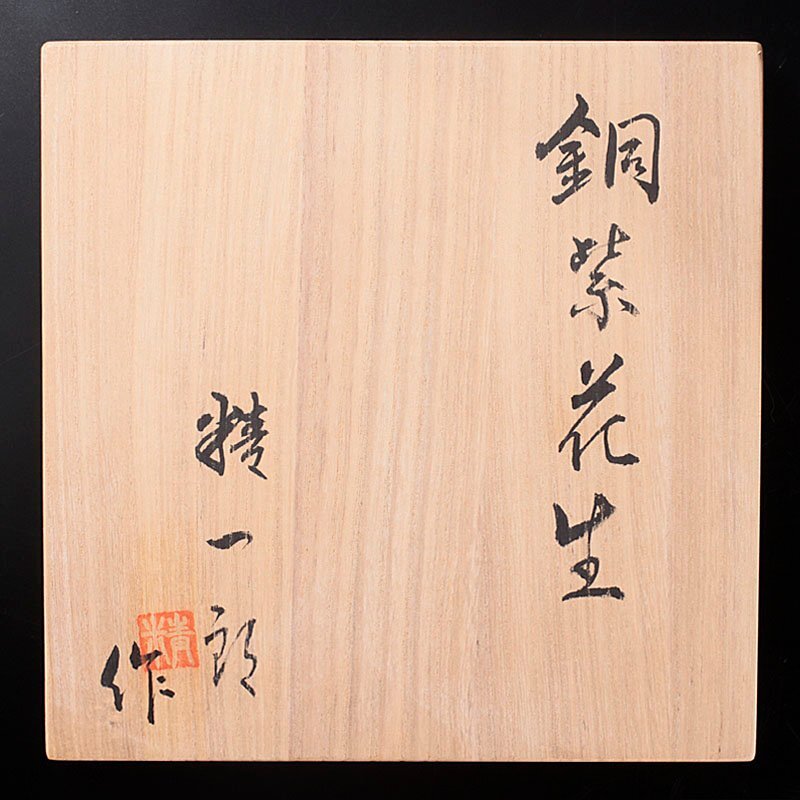 銅紫花生
精一郎
作
精